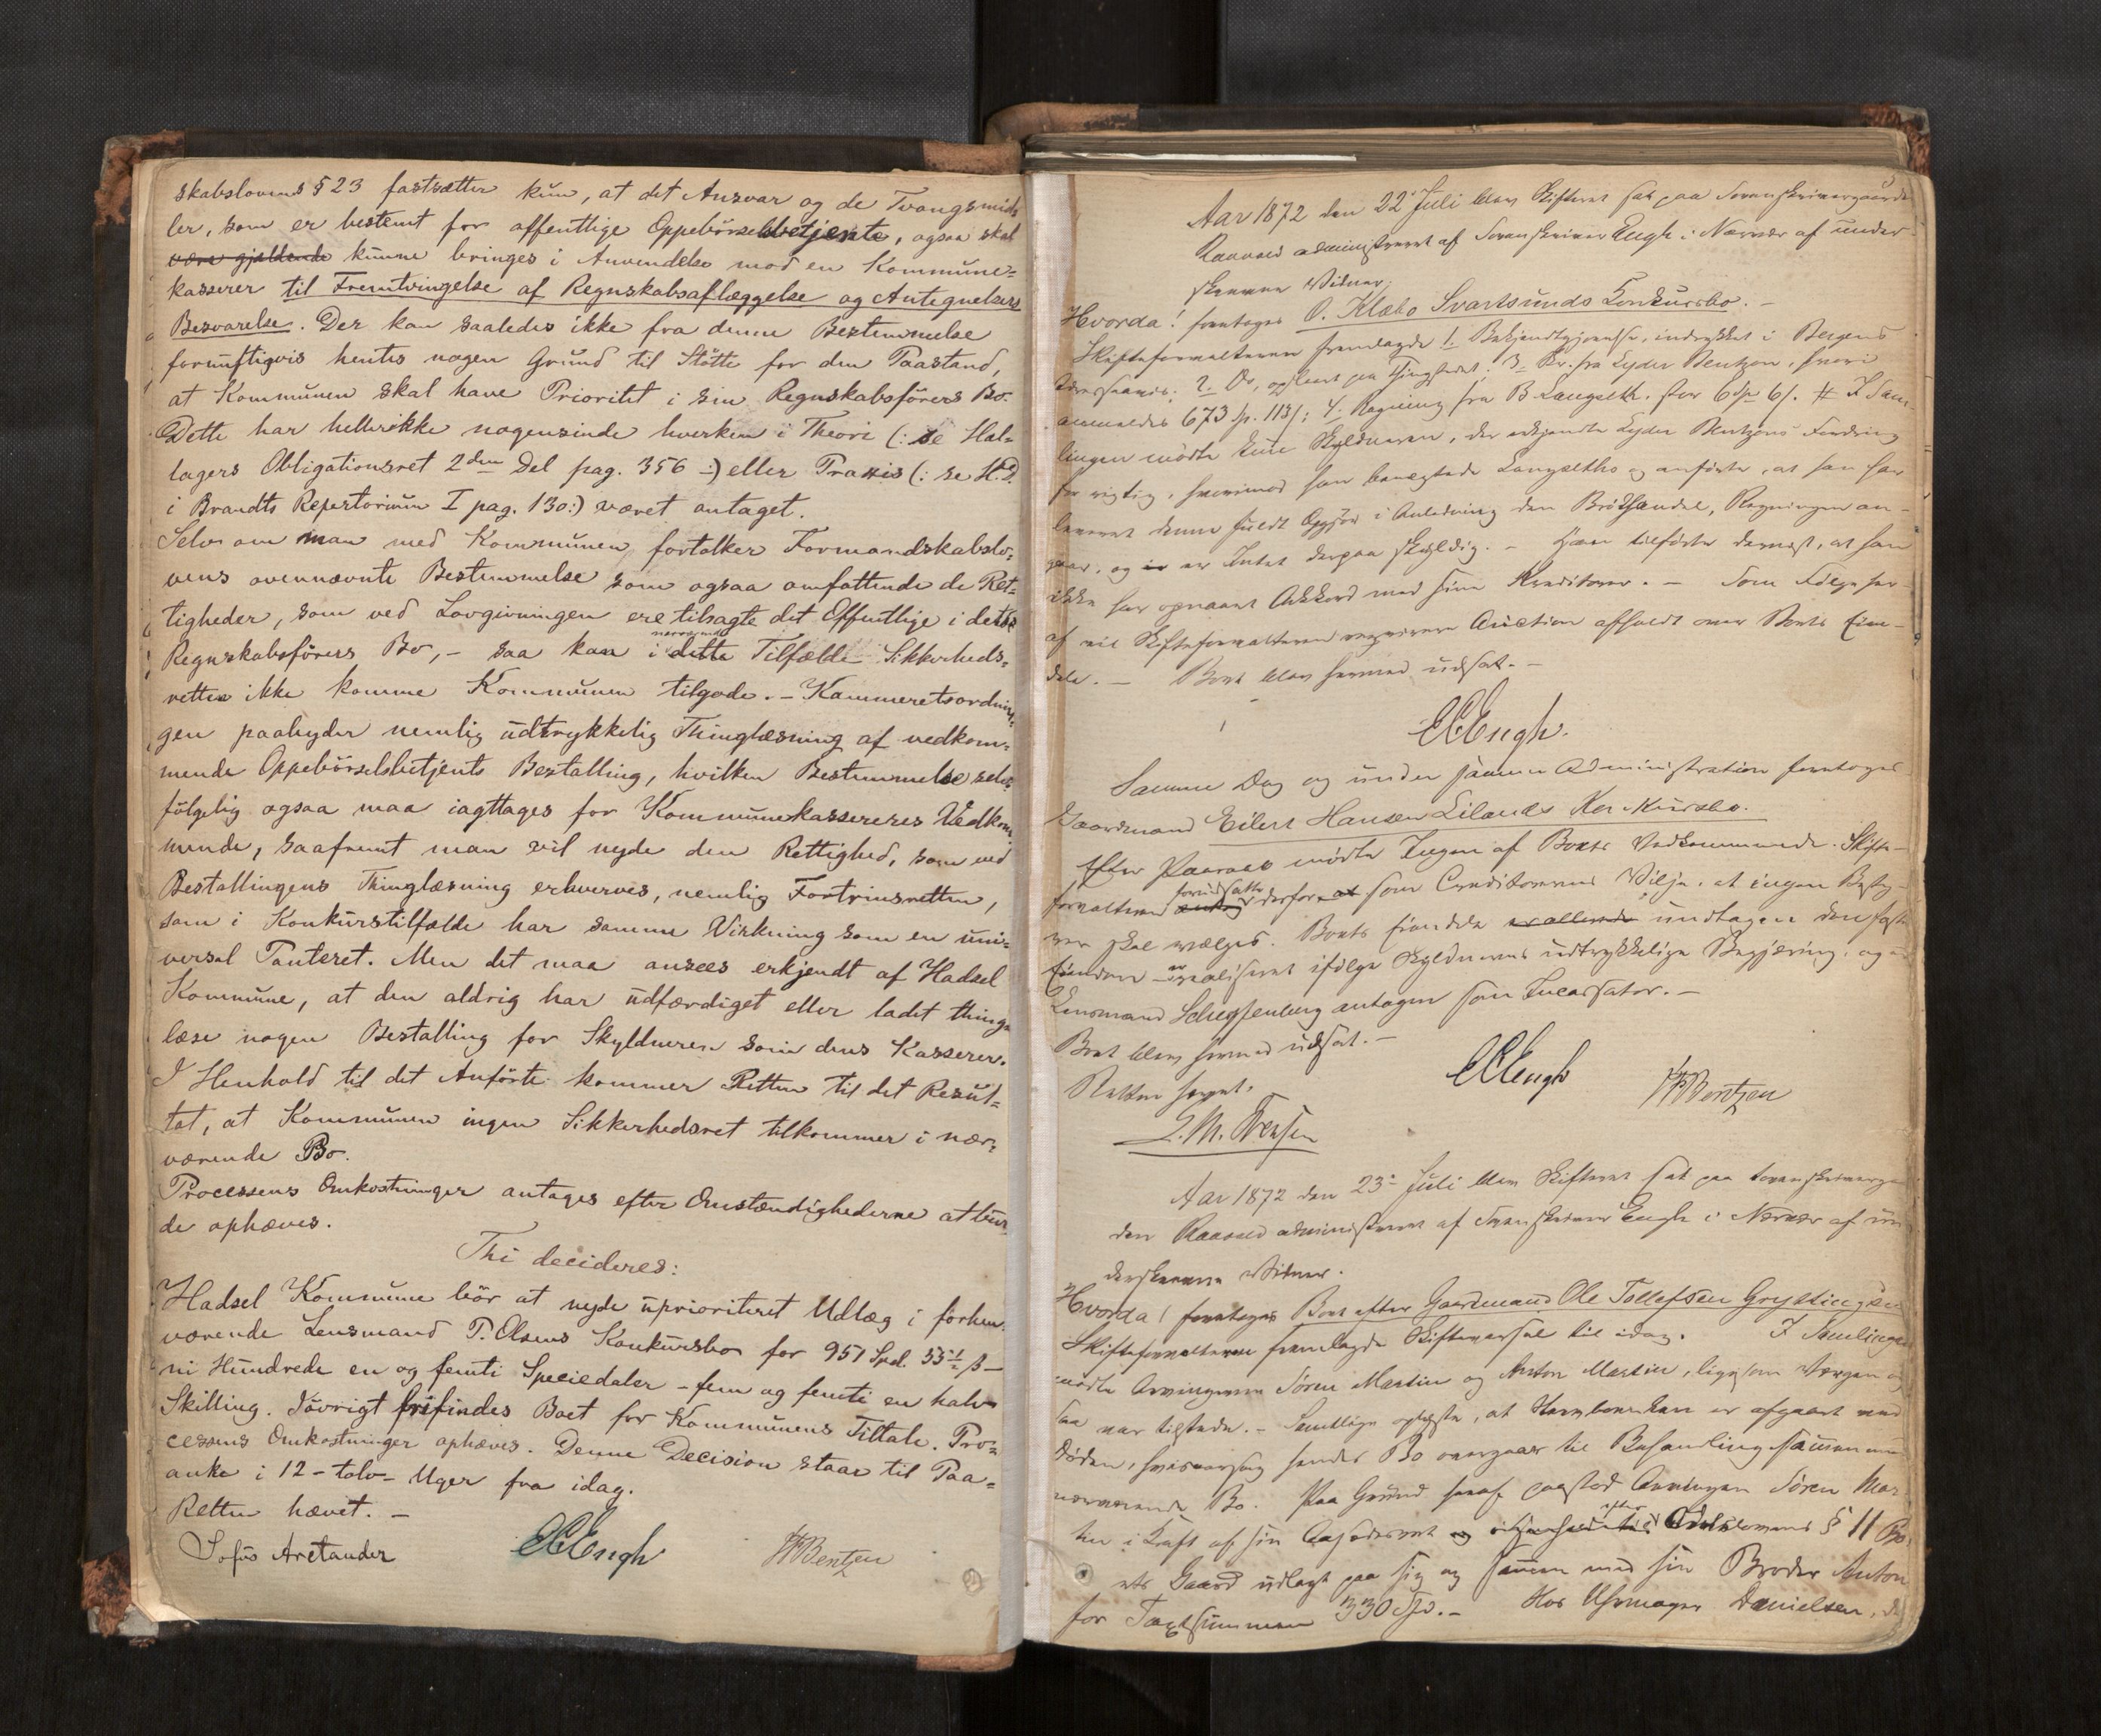 skabslovens § 23 fastsætter kun, at det Ansvar og de Tvangsmid-
ler, som er bestemt for offentlige Oppebörselsbetjente, ogsaa skal
være gjældende kunne bringes i Anvendelse mod en Kommune=
kasserer til Fremtvingelse af Regnskabsaflæggelse og Antegnelsers
Besvarelse. Der kan saaledes ikke fra denne Bestemmelse
fornuftigvis hentes nogen Grund til Stötte for den Paastand,
at Kommunen skal have Prioritet i sin Regnskabsförers Bo.
Dette har hellerikke nogensinde hverken i Theori (: se Hal=
lagers Obligationsret 2den Del pag. 356 :) eller Praxis (: se H.D.
i Brandts Repertorium I pag. 130:) været antaget.
Selv om man med Kommunen fortolker Formandskabslo=
vens ovennævnte Bestemmelse som ogsaa omfattende de Ret=
tigheder, som ved Lovgivningen ere tilsagte det Offentlige i dets
nærværende
Regnskabsförers Bo, - saa kan i dette Tilfælde Sikkerheds=
retten ikke komme Kommunen tilgode. - Kammerretsordnin=
gen paabyder nemlig udtrykkelig Thinglæsning af vedkom=
mende Oppebörselsbetjents Bestalling, hvilken Bestemmelse selv=
fölgelig ogsaa maa iagttages for Kommunekassereres Vedkom=
mende, saafremt man vil nyde den Rettighed, som ved
Bestallingens Thinglæsning erhverves, nemlig Fortrinsretten,
som i Konkurstilfælde har samme Virkning som en uni=
versal Panteret. Men det maa ansees erkjendt af Hadsel
Kommune, at den aldrig har udfærdiget eller ladet thing=
læse nogen Bestalling for Skyldneren som dens Kasserer.
I Henhold til det Anförte kommer Retten til det Resul=
tat, at Kommunen ingen Sikkerhedsret tilkommer i nær=
værende Bo.
Processens Omkostninger antages efter Omstændighederne at bur=
de ophæves.
Thi decideres:
Hadsel Kommune bör at nyde uprioriteret Udlæg i forhen=
værende Lensmand P. Olsens Konkursbo for 951 Spd. 55½ ß -
ni Hundrede en og femti Speciedaler - fem og femti en halv
Skilling. Iövrigt frifindes Boet for Kommunens Tiltale. Pro=
cessens Omkostninger ophæves. Denne Decision staar til Paa=
anke i 12 - tolv - Uger fra idag.
Retten hævet. -
Sofus Arctander ECEngh HBentzen
Aar 1872 den 22' Juli blev Skifteret sat paa Sorenskrivergaarden
Raavold administreret af Sorenskriver Engh i Nærvær af under-
skrevne Vidner,
Hvorda! foretoges O. Klæbo Svartsunds Konkursbo. -
Skifteforvalteren fremlagde 1. Bekjendtgjørelse, indrykket i Bergens
Adresseavis; 2. Do, opslaaet paa Thingstedet; 3. Br. fra Lyder Wentzon, hvori
anmeldes 673 Sp. 113/; 4. Regning fra B. Langseth, stor 6 Spd 6/. # I Sam-
lingen mödte kun Skyldneren, der erkjendte Lyder Wentzons Fordring
for rigtig, hvorimod han benegtede Langseths og anförte, at han har
leveret denne fuldt Opgjör i Anledning den Brödhandel, Regningen an-
gaar, og er Intet derpaa skyldig. - Han tilförte dernæst, at han
ikke har opnaaet Akkord med sine Kreditorer. - Som Fölge her-
af vil Skifteforvalteren requirere Auction afholdt over Boets Eien-
dele. - Boet blev hermed udsat. -
ECEngh.
Samme Dag og under samme Administration foretoges
Gaardmand Eilert Hansen Eilands Konkursbo.
Efter Paaraab mödte Ingen af Boets Vedkommende. Skifte-
forudsatte
forvalteren antog derfor at som Creditorernes Vilje, at ingen Besty-
rer skal vælges. Boets Eiendele er allerede undtagen den faste
er
Eiendom - realiseret ifölge Skyldnerens udtrykkelige Begjæring, og er
Lensmand antagen som Incassator. -
Boet blev hermed udsat. -
Retten hævet. ECEngh HBentzen
Aar 1872 den 23' Juli blev Skifteret sat paa Sorenskrivergaar
den Raavold administreret af Sorenskriver Engh i Nærvær af un
derskrevne Vidner.
Hvorda! foretoges Boet efter Gaardmand Ole Tollefsen Gryttingen
Skifteforvalteren fremlagde Skiftevarsel til idag. I Samlingen
mödte Arvingerne Sören Martin og Anton Martin, ligesom Værgen og
saa var tilstede. - Samtlige oplyste, at er afgaaet ved
Döden, hvisaarsag hendes Bo overgaar til Behandling sammen med
nærværende Bo. Paa Grund heraf paastod Arvingen Sören Mar-
efter
tin i Kraft af sin Aasædesret og Odelslovens § 11 Bo-
ets Gaard udlagt paa sig og sammen med sin Broder Anton
for Taxtsummen 330 Spd. - Hos Uhrmager Danielsen,